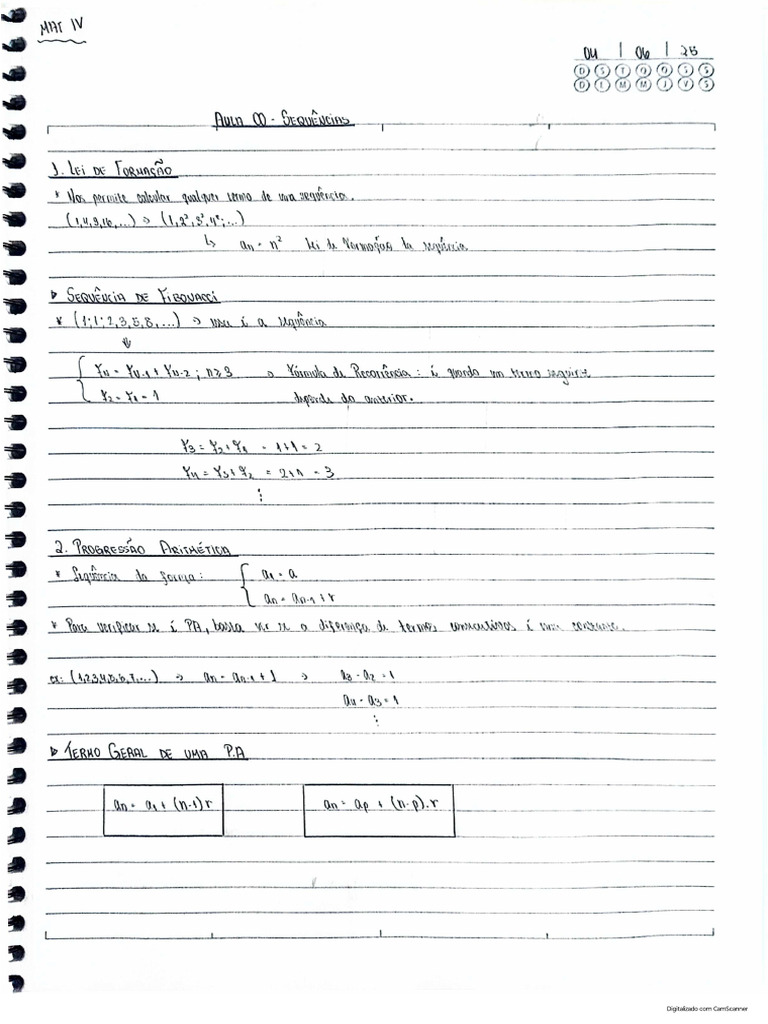 MAT IV
04 | 06 | 25
D S T Q Q S S
D L M M J V S
AULA 00 - SEQUÊNCIAS
1. LEI DE FORMAÇÃO
* Nos permite calcular qualquer termo de uma sequência.
(1,4,9,16,...) → (1,2²,3²,4²,...)
↳ an = n² Lei de Formação da sequência
▹ SEQUÊNCIA DE FIBONACCI
* (1;1;2,3,5,8,...) → essa é a sequência
⇓
{ Fn = Fn-1 + Fn-2 ; n≥3 → Fórmula de Recorrência: é quando um termo seguinte
F2 = F1 = 1 depende do anterior.
F3 = F2 + F1 = 1+1 = 2
F4 = F3 + F2 = 2+1 = 3
⋮
2. PROGRESSÃO ARITMÉTICA
* Sequência da forma: { a1 = a
an = an-1 + r
* Para verificar se é PA, basta ver se a diferença de termos consecutivos é uma constante.
ex: (1,2,3,4,5,6,7,...) → an = an-1 + 1 → a3 - a2 = 1
a4 - a3 = 1
⋮
▹ TERMO GERAL DE UMA P.A
an = a1 + (n-1)r an = ap + (n-p).r
Digitalizado com CamScanner